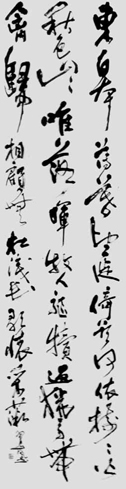 東皋薄暮望徙倚欲何依樹々皆
秋色山々唯落暉牧人驅犢返獵馬帶
禽歸相顧無相識長歌懷采薇